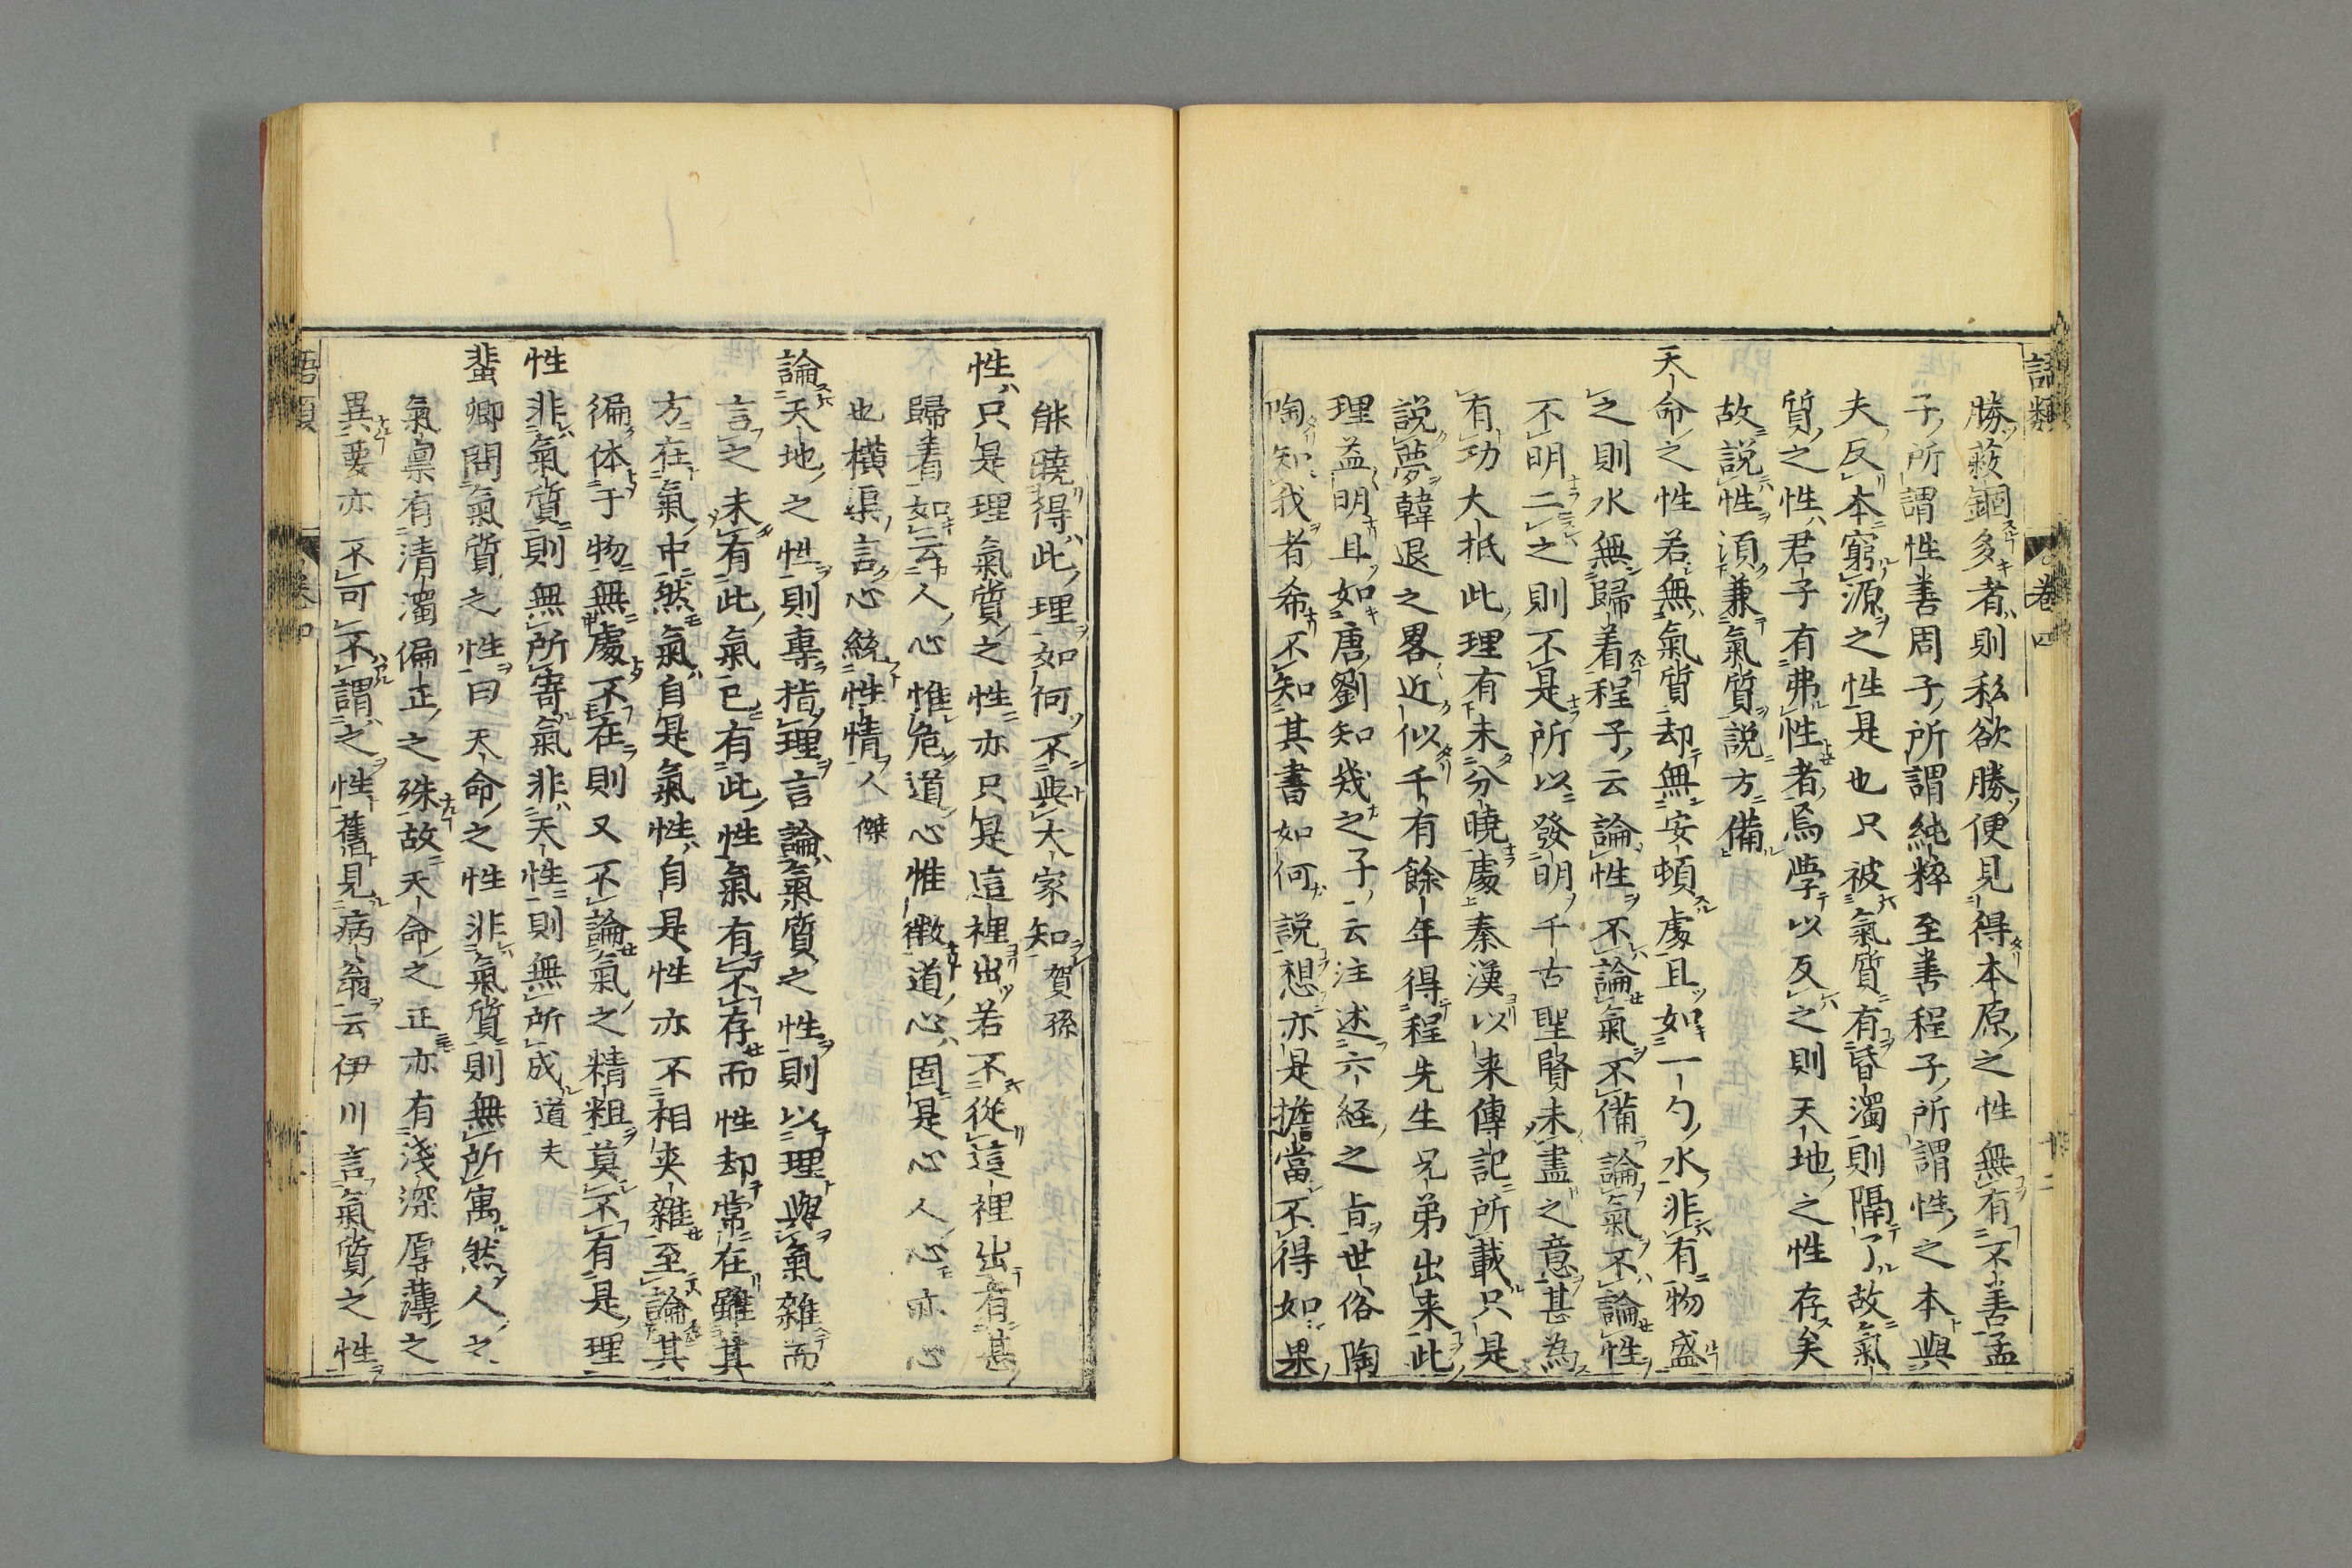 語類 卷四 十二
勝蔽錮多者則私欲勝便見得本原之性無有不善孟
子所謂性善周子所謂純粹至善程子所謂性之本與
夫反本窮源之性是也只被氣質有昏濁則隔了故氣
質之性君子有弗性者焉學以反之則天地之性存矣
故說性須兼氣質說方備
天命之性若無氣質却無安頓處且如一勺水非有物盛
之則水無歸着程子云論性不論氣不備論氣不論性
不明二之則不是所以發明千古聖賢未盡之意甚為
有功大抵此理有未分曉處秦漢以来傳記所載只是
說夢韓退之畧近似千有餘年得程先生兄弟出来此
理益明且如唐劉知幾之子云注述六経之旨世俗陶
陶知我者希不知其書如何說想亦是擔當不得如果
能曉得此理如何不與大家知賀孫
性只是理氣質之性亦只是這裡出若不從這裡出有甚
歸着如云人心惟危道心惟微道心固是心人心亦心
也橫渠言心統性情人傑
論天地之性則專指理言論氣質之性則以理與氣雜而
言之未有此氣已有此性氣有不存而性却常在雖其
方在氣中然氣自是氣性自是性亦不相夾雜至論其
徧体于物無處不在則又不論氣之精粗莫不有是理
性非氣質則無所寄氣非天性則無所成道夫
蜚卿問氣質之性曰天命之性非氣質則無所寓然人之
氣禀有清濁偏正之殊故天命之正亦有淺深厚薄之
異要亦不可不謂之性舊見病翁云伊川言氣質之性
語類